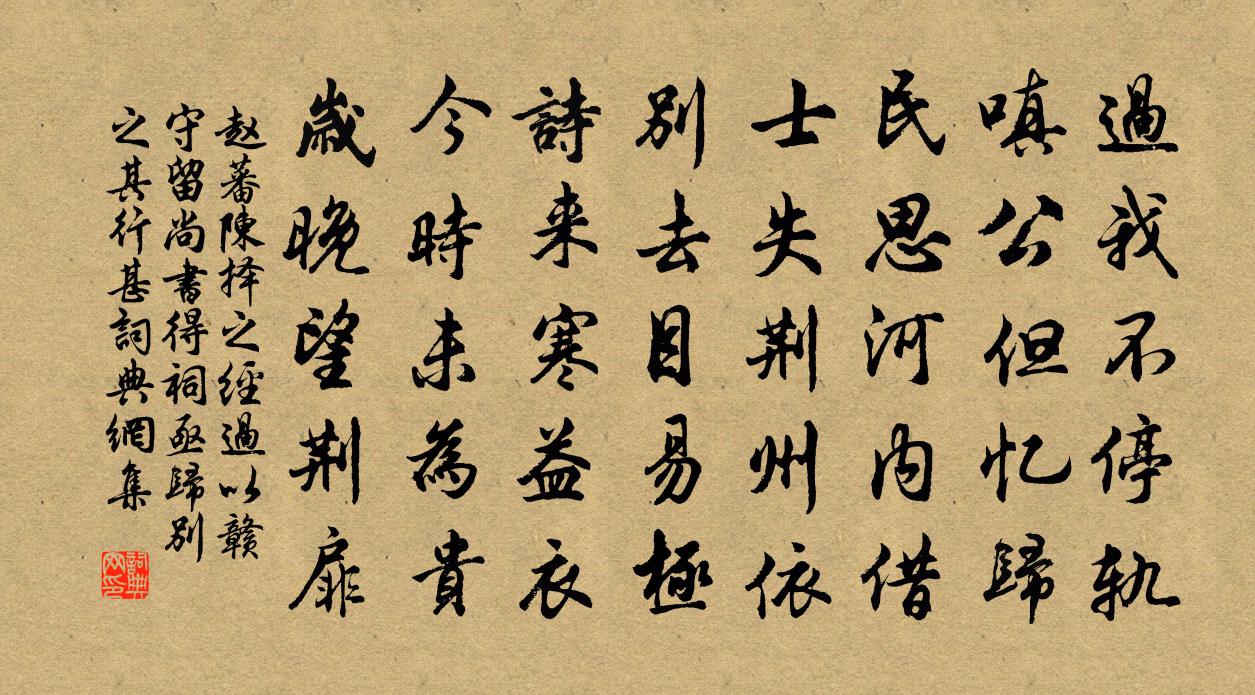 過我不停軌
嗔公但忆歸
民思河内借
士失荆州依
別去目易極
詩来寒益衣
今時未為貴
歲晚望荆扉
赵蕃陳择之經過以贛
守留尚書得祠亟歸別
之其行甚詞典網集
詞典网印